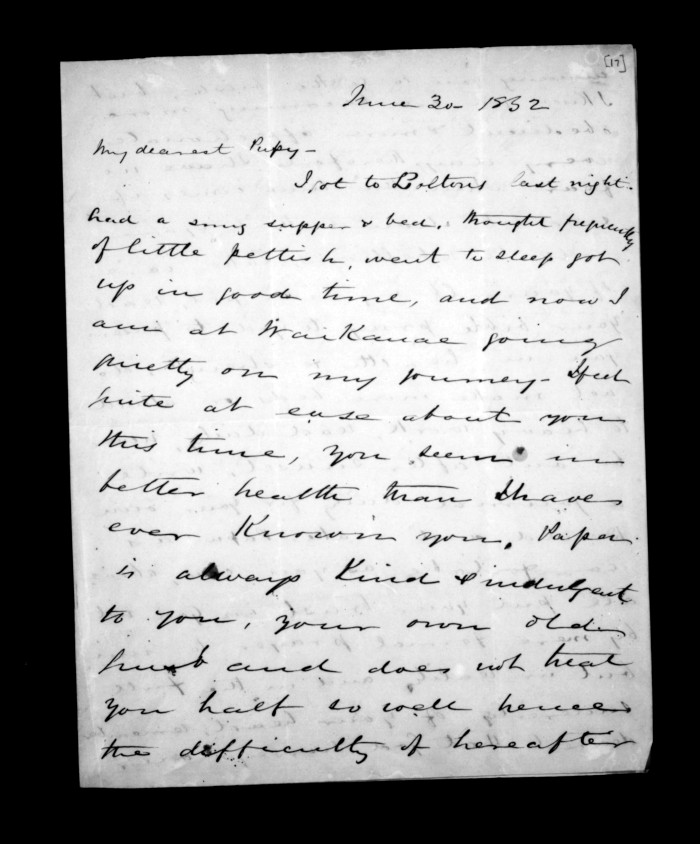 [17]
June 30 1852
My dearest Pupsy -
I got to Boltons last night.
had a snug supper & bed, thought frequently
of little pettish, went to sleep got
up in good time, and now I
am at Waikanae going
quietly on my journey - I feel
quite at ease about you
this time, you seem in
better health than I have
ever known you, Papa
is always kind & indulgent
to you, your own old
husband does not treat
you half so well hence
the difficulty of hereafter